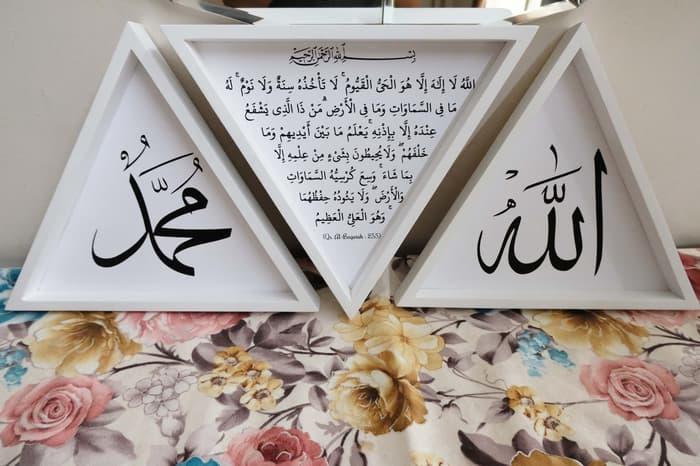 الله
بِسْمِ اللهِ الرَّحْمٰنِ الرَّحِيْمِ
اللَّهُ لَا إِلَهَ إِلَّا هُوَ الْحَيُّ الْقَيُّومُ ۚ لَا تَأْخُذُهُ سِنَةٌ وَلَا نَوْمٌ ۚ لَهُ
مَا فِي السَّمَاوَاتِ وَمَا فِي الْأَرْضِ ۗ مَنْ ذَا الَّذِي يَشْفَعُ
عِنْدَهُ إِلَّا بِإِذْنِهِ ۚ يَعْلَمُ مَا بَيْنَ أَيْدِيهِمْ وَمَا
خَلْفَهُمْ ۖ وَلَا يُحِيطُونَ بِشَيْءٍ مِنْ عِلْمِهِ إِلَّا
بِمَا شَاءَ ۚ وَسِعَ كُرْسِيُّهُ السَّمَاوَاتِ
وَالْأَرْضَ ۖ وَلَا يَئُودُهُ حِفْظُهُمَا
ۚ وَهُوَ الْعَلِيُّ الْعَظِيمُ
(Qs. Al-Baqarah : 255)
مُحَمَّدٌ